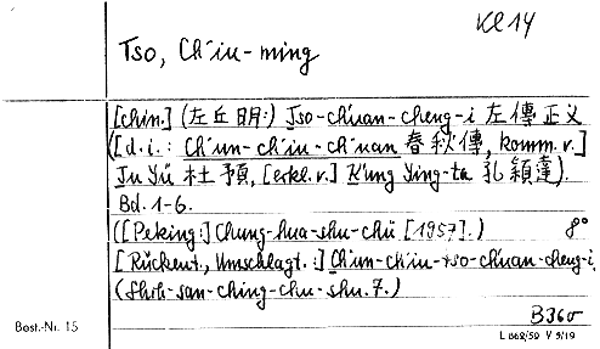 Kl 14
Tso, Ch'iu-ming
[chin.] (左丘明:) Tso-chuan-cheng-i 左傳正义
([d.i.: Ch'un-ch'iu-ch'uan 春秋傳, komm. v.]
Tu Yü 杜預, [erkl. v.] K'ung Ying-ta 孔穎達).
Bd. 1-6.
([Peking:] Chung-hua-shu-chü [1957].) 8°
[Rückent., Umschlagt.:] Ch'un-ch'iu-tso-ch'uan-cheng-i.
(Shih-san-ching-chu-shu. 7.)
B360
Best.-Nr. 15
L 868/59 V 9/19